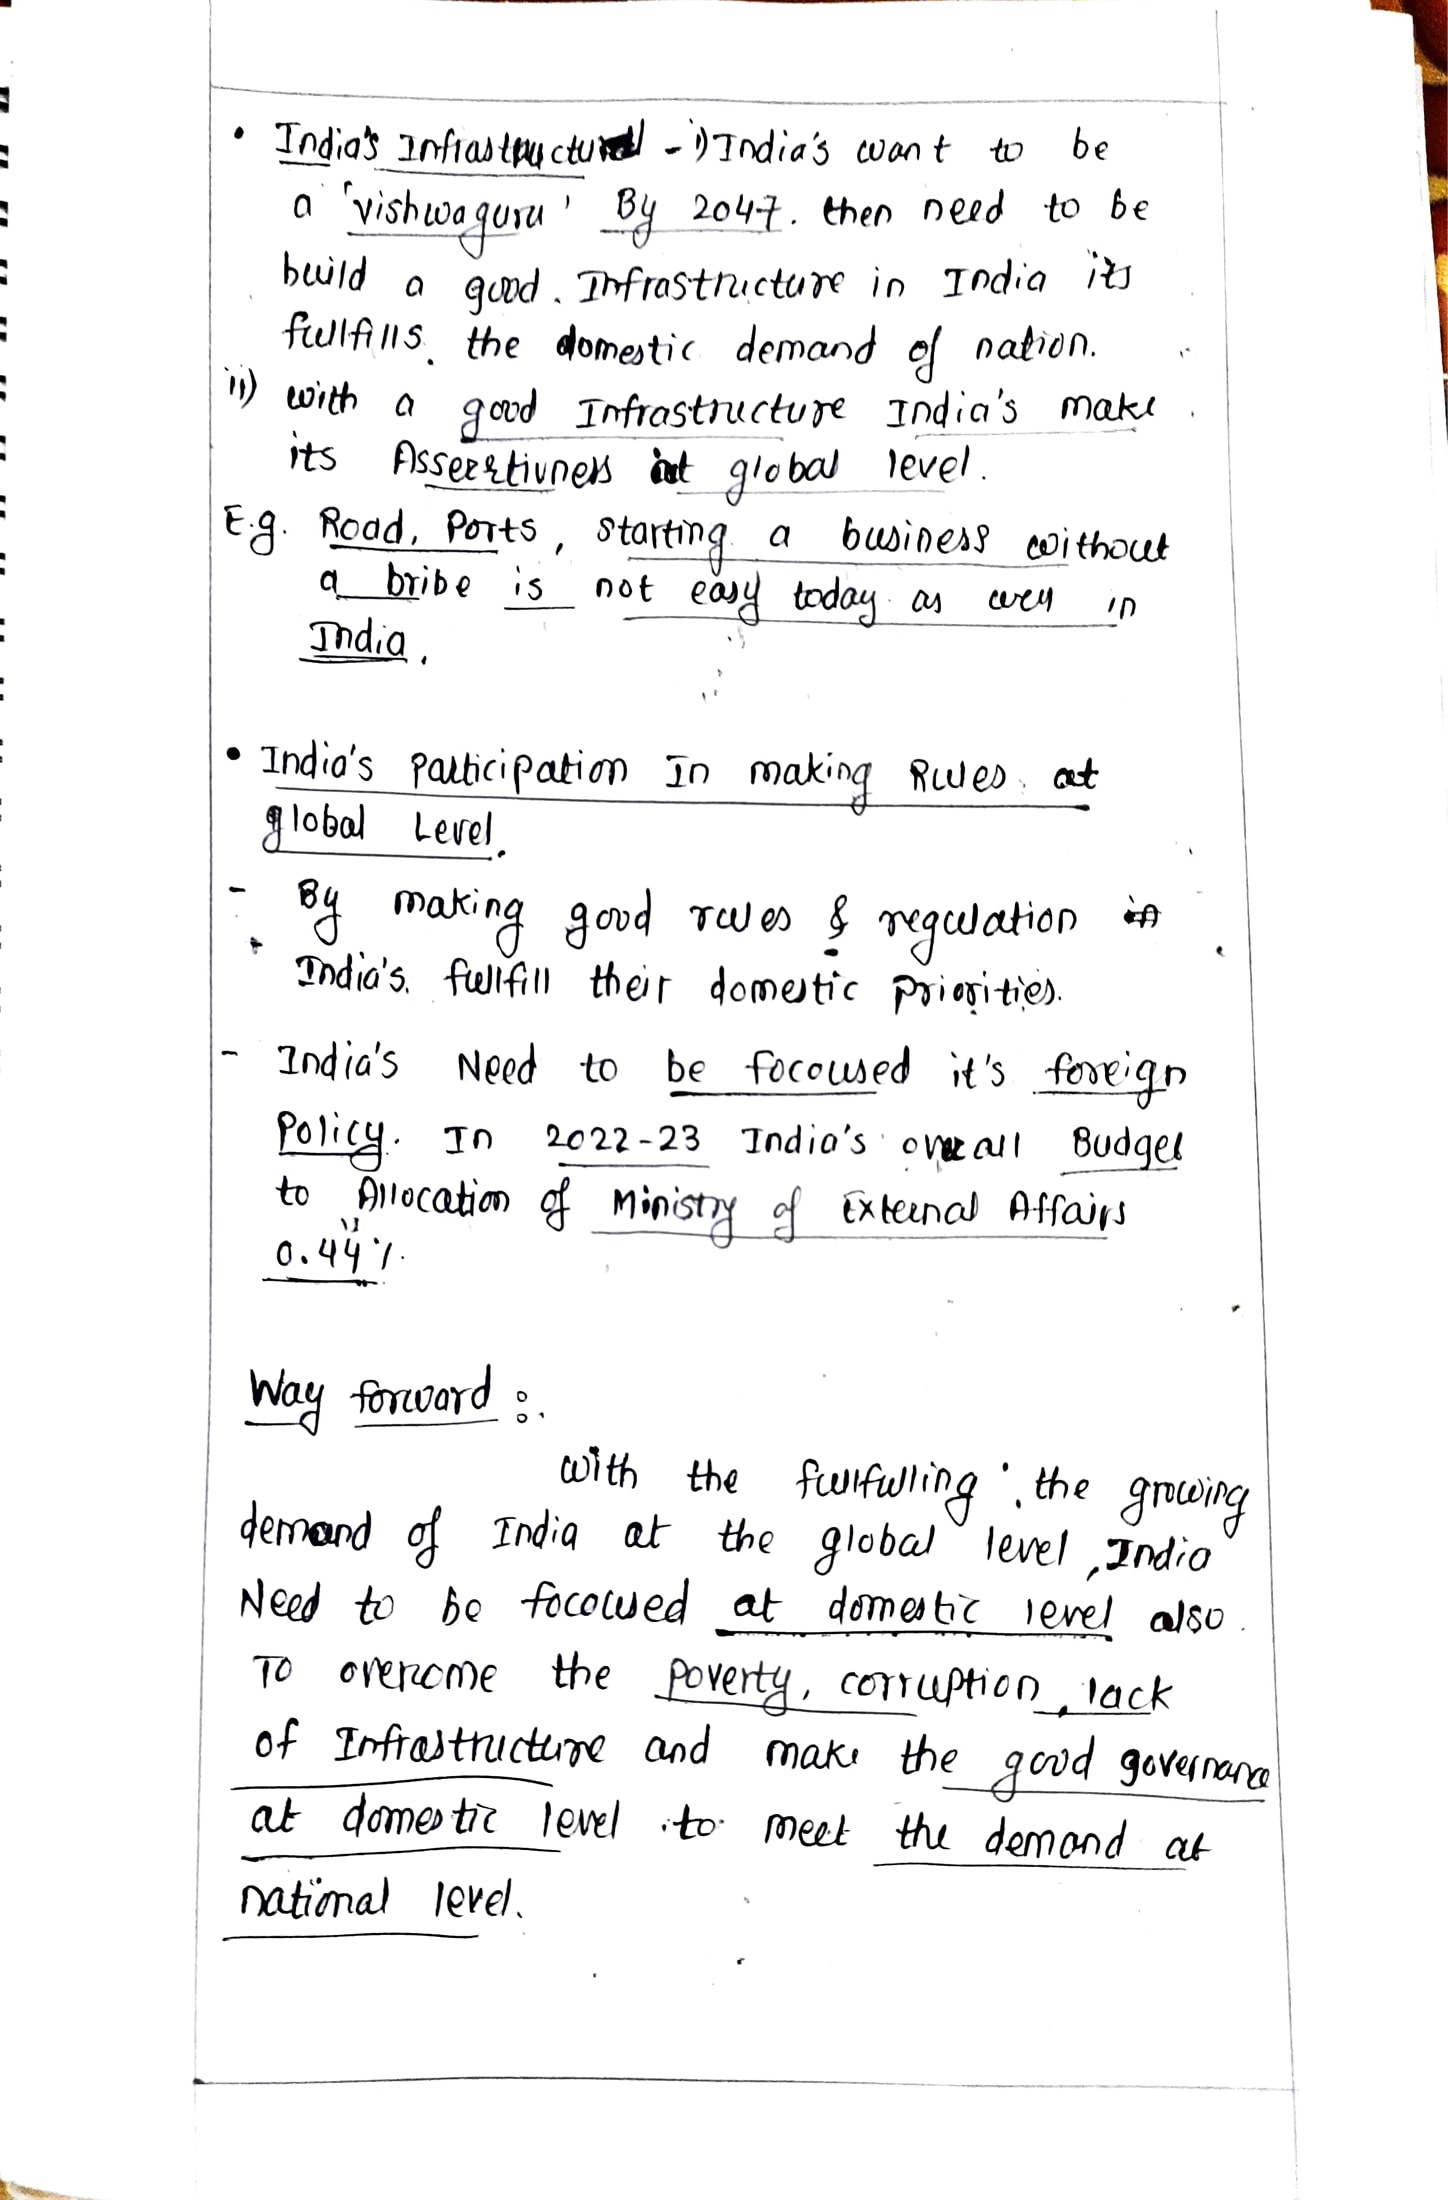 • India's Infrastructural - i) India's want to be
a 'vishwaguru' By 2047. then need to be
build a good. Infrastructure in India its
fullfills. the domestic demand of nation.
ii) with a good Infrastructure India's make
its Assertivness at global level.
E.g. Road, Ports, starting a business without
a bribe is not easy today as well in
India.
• India's participation In making Rules at
global Level.
- By making good rules & regulation in
India's. fullfill their domestic priorities.
- India's Need to be focoused it's foreign
Policy. In 2022-23 India's overall Budget
to Allocation of Ministry of External Affairs
is
0.44%.
Way forward :-
with the fullfulling the growing
demand of India at the global level, India
Need to be focoused at domestic level also.
To overcome the poverty, corruption, lack
of Infrastructure and make the good governance
at domestic level to meet the demand at
national level.